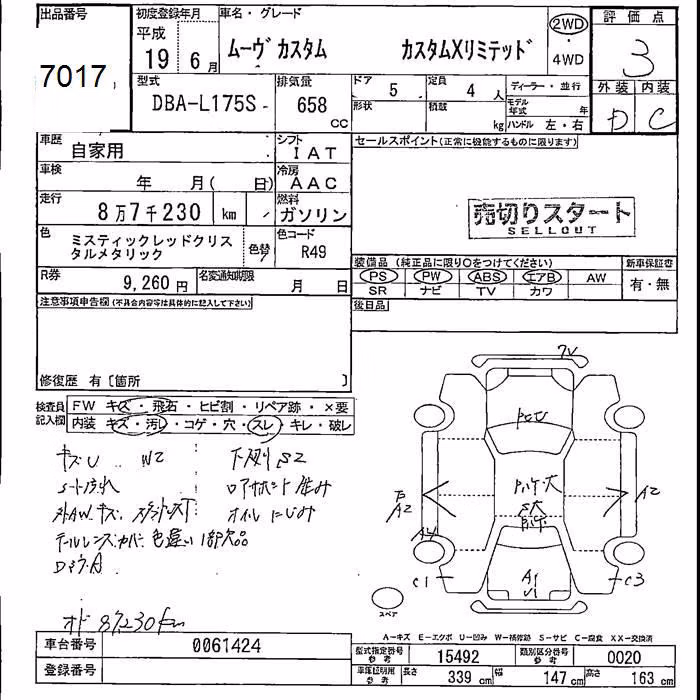 出品番号
7017
初度登録年月
平成
19年 6月
車名・グレード
ムーヴ カスタム カスタムXリミテッド
2WD
・
4WD
評価点
3
外装 内装
D C
型式
DBA-L175S
排気量
658
CC
ドア 5
形状
定員 4 人
積載 kg
ディーラー・並行
モデル年式 年
ハンドル 左・右
車歴
自家用
シフト
IAT
車検
年 月( 日)
冷房
AAC
走行
8万7千230 km
燃料
ガソリン
色
ミスティックレッドクリスタルメタリック
色替
カラーコード
R49
R券
9,260円
名変通知期限
月 日
セールスポイント(正常に機能するものに限ります)
売切りスタート
SELLOUT
装備品(純正品に限り○をつけてください)
PS PW ABS エアB AW
SR ナビ TV カワ
新車保証書
有・無
後日品
注意事項申告欄(不具合内容等は具体的に記入して下さい)
修復歴 有〔箇所 〕
検査員記入欄
FW キズ・飛石・ヒビ割・リペア跡・×要
内装 キズ・汚レ・コゲ・穴・スレ・キレ・破レ
キズU W2 下廻りS2
シート汚れ
オイルにじみ
色違い 1部欠品
オド 87230km
A2
A2
C1
C3
A1
U1
スペア
A−キズ E−エクボ U−凹み W−補修跡 S−サビ C−腐食 XX−交換済
車台番号
0061424
登録番号
型式指定番号
参考
15492
類別区分番号
参考
0020
車庫証明用
参考
長さ 339 cm 幅 147 cm 高さ 163 cm